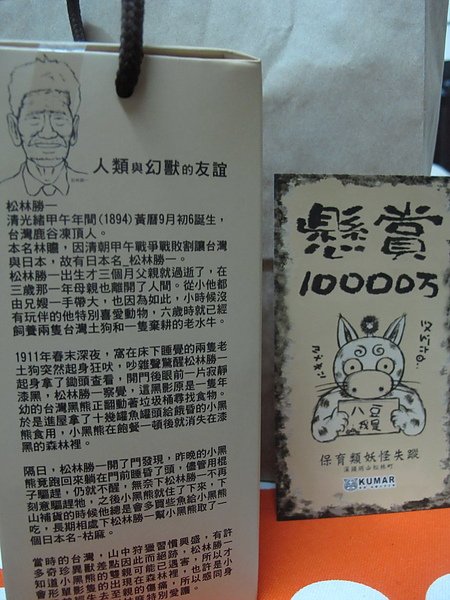 人類與幻獸的友誼
松林勝一
清光緒甲午年間(1894)黃曆9月初6誕生，
台灣鹿谷凍頂人。
本名林瞻，因清朝甲午戰爭戰敗割讓台灣
與日本，故有日本名_松林勝一。
松林勝一出生才三個月父親就過逝了，在
三歲那一年母親也離開了人間。從小他都
由兄嫂一手帶大，也因為如此，小時候沒
有玩伴的他特別喜愛動物，六歲時就已經
飼養兩隻台灣土狗和一隻棄耕的老水牛。
1911年春末深夜，窩在床下睡覺的兩隻老
土狗突然起身狂吠，吵雜聲驚醒松林勝一
起身拿了鋤頭查看，開門後眼前一片寂靜
漆黑，松林勝一察覺，這黑影原是一隻年
幼的台灣黑熊正翻動著垃圾桶尋找食物。
於是進屋拿了十幾罐魚罐頭給餓昏的小黑
熊食用，小黑熊在飽餐一頓後就消失在漆
黑的森林裡。
隔日，松林勝一開了門發現，昨晚的小黑
熊竟跑回來躺在門前睡昏了頭，儘管用棍
子驅趕，仍就不醒，無奈下松林勝一不再
刻意驅趕牠，之後小黑熊就住了下來，下
山補貨的時候他總是會多買些魚給小黑熊
吃，長期相處下松林勝一幫小黑熊取了一
個日本名-枯麻。
當時的台灣，山中狩獵習慣興盛，有許
多奇珍異獸差點因此而絕跡，松林勝一
知道小黑熊的雙親可能已遇害，所以才
會形單影隻的出現在森林裡，也許是小
懸賞
10000万
八豆
保育類妖怪失蹤
KUMAR